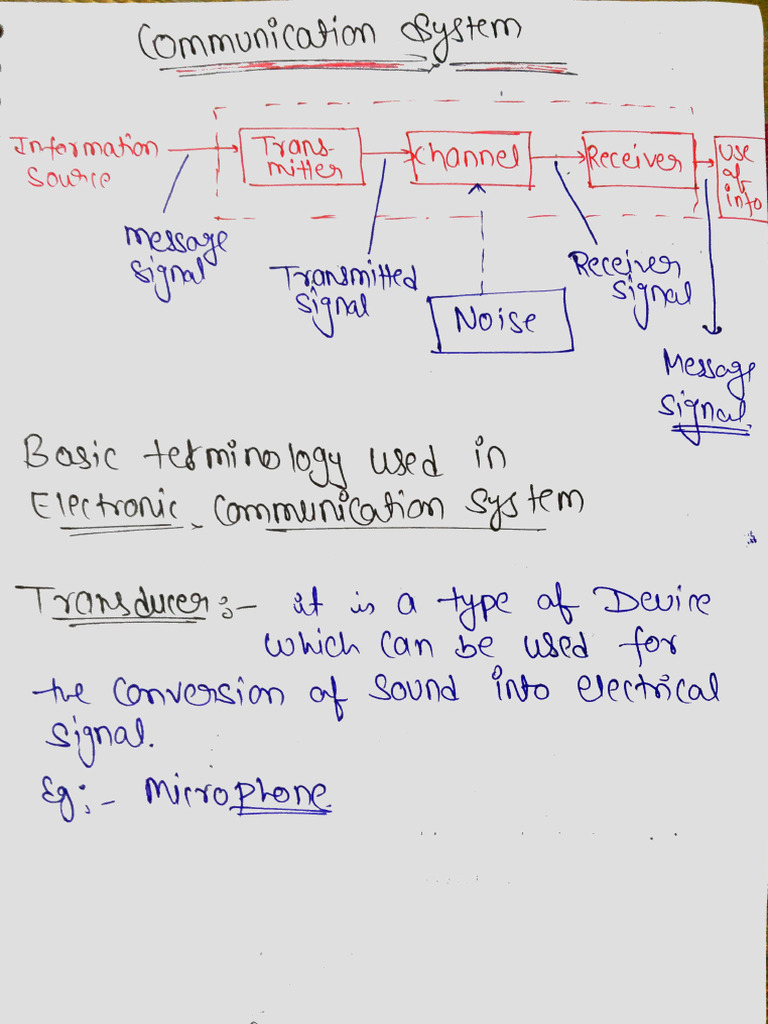 Communication System
Information
Source
Trans-
mitter
Channel
Receiver
Use
of
info
Message
Signal
Transmitted
Signal
Noise
Receiver
Signal
Message
Signal.
Basic terminology used in
Electronic Communication System
Transducer:- it is a type of Device
which can be used for
the conversion of sound into electrical
signal.
Eg:- Microphone.